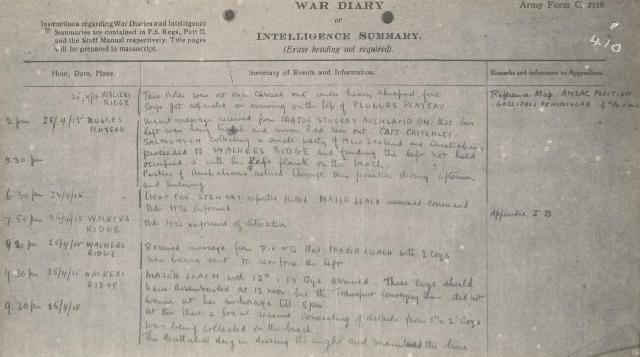 WAR DIARY
or
INTELLIGENCE SUMMARY.
(Erase heading not required).
Army Form C. 2118.
410
Instructions regarding War Diaries and Intelligence
Summaries are contained in F.S. Regs., Part II.
and the Staff Manual respectively. Title pages
will be prepared in manuscript.
Hour, Date, Place.
Summary of Events and Information.
Remarks and references to Appendices
25/4/15 WALKERS
RIDGE
was at once carried out under heavy shrapnel fire
Coys got separated on arriving on the top of PLUGGES PLATEAU
Reference Map. ANZAC POSITION
GALLIPOLI PENINSULAR
2 pm 25/4/15 PLUGGES
PLATEAU
Urgent message received from MAJOR STUCKEY AUCKLAND BN. that his
left was being turned and ammn had run out. CAPT. CRITCHLEY-
SALMONSON collecting a small party of New Zealand and Australians
proceeded to WALKERS RIDGE and finding the left not held
occupied it with his left flank on the beach.
3.30 pm
Parties of Australians retired through this position during afternoon
and evening
6.30 pm 25/4/15
LIEUT COL STEWART reported killed MAJOR LOACH assumed command
Bde HQ informed
7.50 pm 25/4/15 WALKERS
RIDGE
Bde HQ informed of situation
Appendix I B
9.20 pm 25/4/15 WALKERS
RIDGE
Received message from DIV HQ that MAJOR LOACH with 2 Coys
was being sent to reinforce the left
9.30 pm 25/4/15 WALKERS
RIDGE
MAJOR LOACH with 12th, 13 Coys arrived. These Coys should
have disembarked at 12 noon but the Transport conveying them did not
arrive at her anchorage till 5pm.
9.30 pm 25/4/15
At this time a local reserve consisting of details from 1st & 2nd Coys
was being collected on the beach
The Battalion dug in during the night and maintained the line